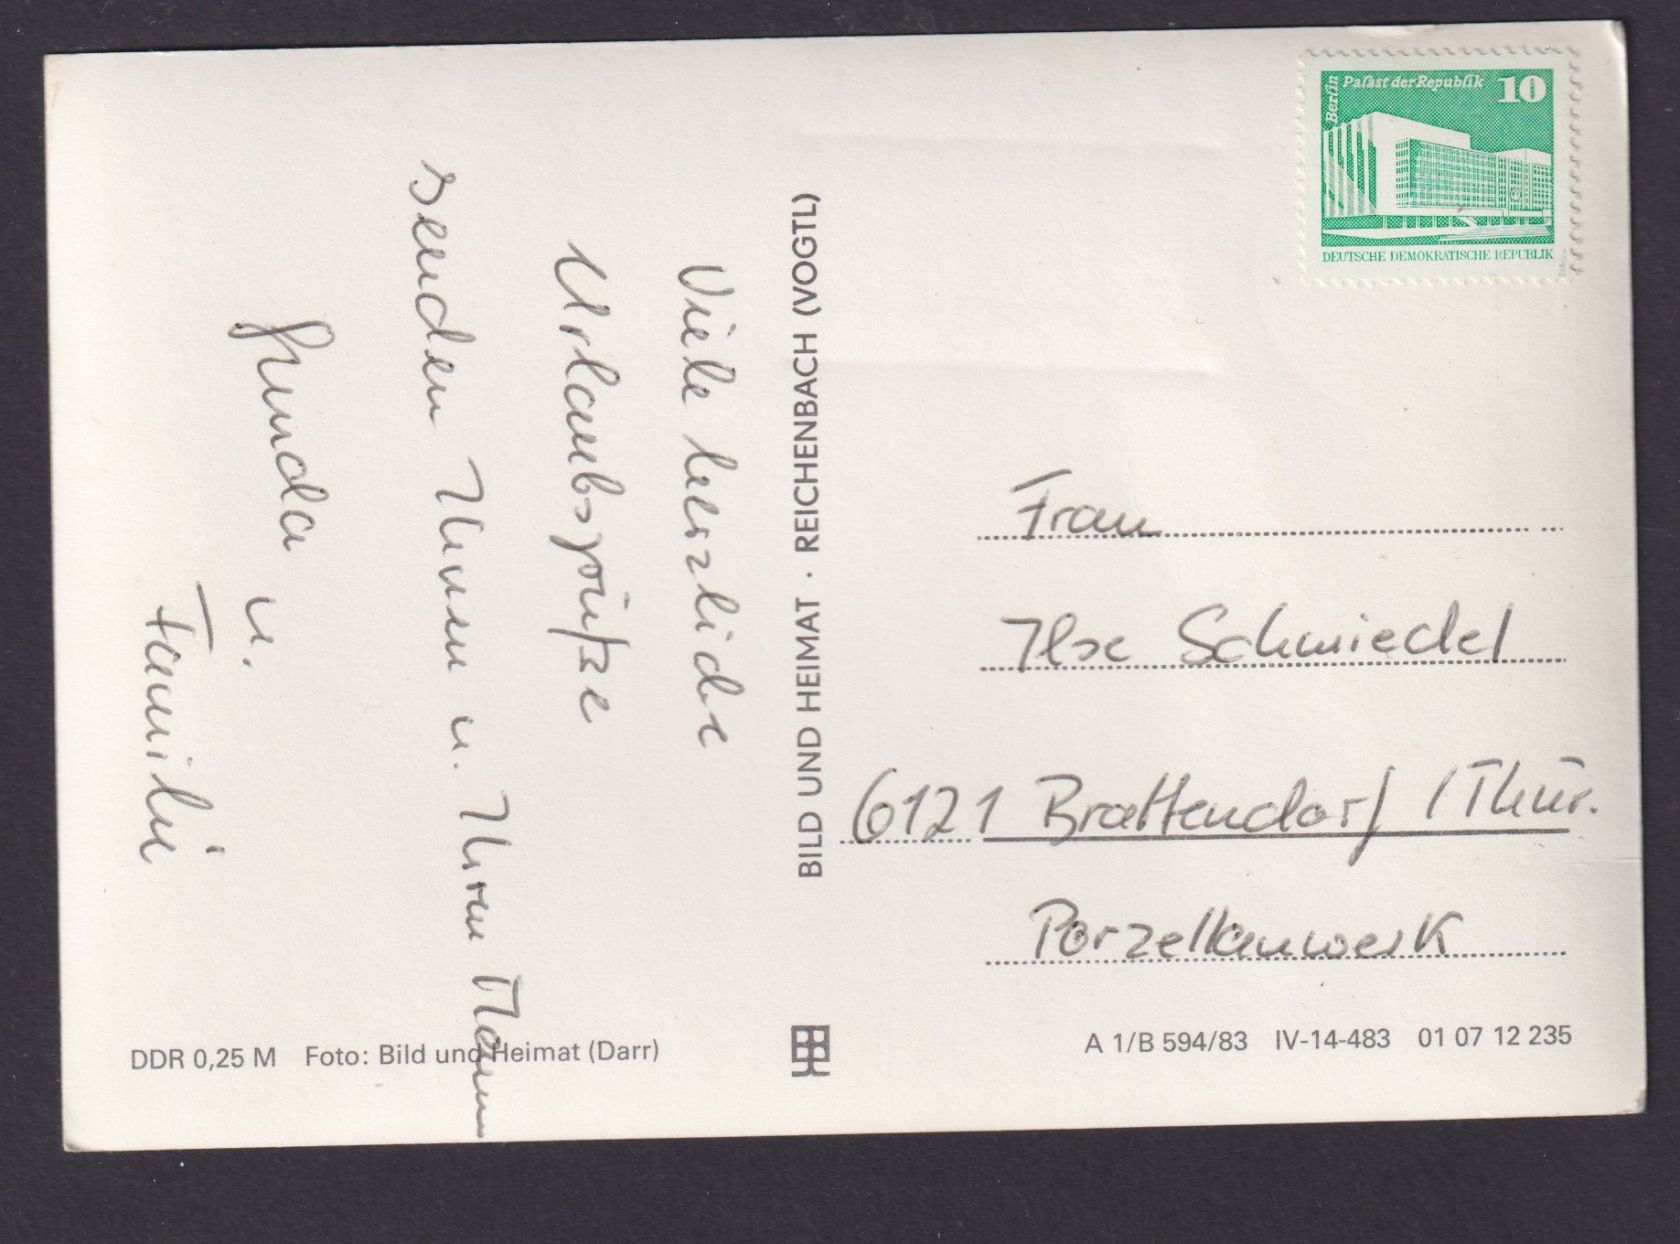 Viele herzliche
Urlaubsgrüße
senden Ihnen u. Ihrem Mann
Gunda u.
Familie
BILD UND HEIMAT · REICHENBACH (VOGTL)
Berlin
Palast der Republik 10
DEUTSCHE DEMOKRATISCHE REPUBLIK
Frau
Ilse Schmiedel
6121 Brattendorf / Thür.
Porzellanwerk
DDR 0,25 M Foto: Bild und Heimat (Darr)
A 1/B 594/83 IV-14-483 01 07 12 235